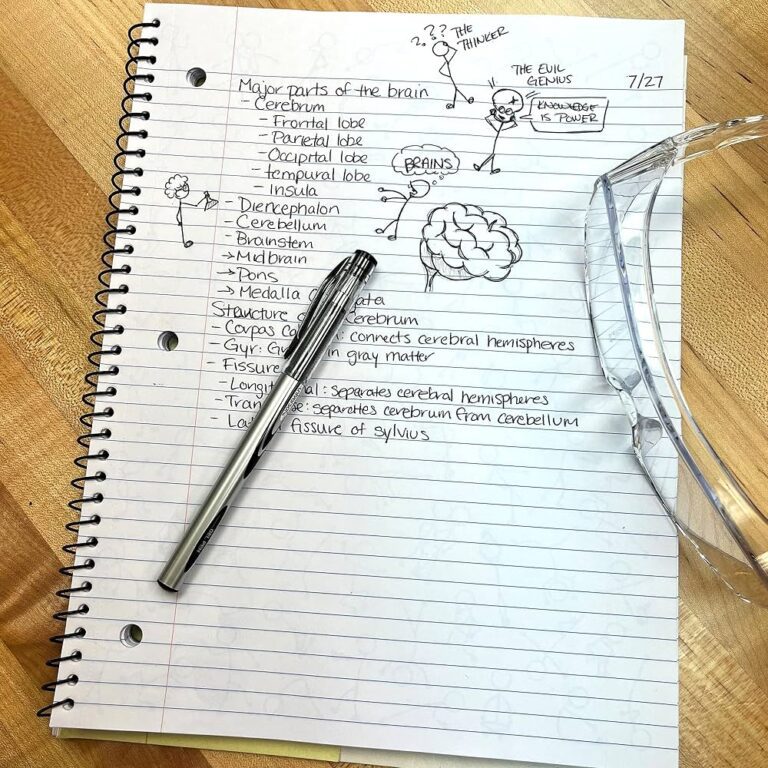 ? ? ? THE
THINKER
THE EVIL
GENIUS
7/27
KNOWLEDGE
IS POWER
Major parts of the brain
- Cerebrum
- Frontal lobe
- Parietal lobe
- Occipital lobe
- tempural lobe
- Insula
BRAINS
- Diencephalon
- Cerebellum
- Brainstem
→ Midbrain
→ Pons
→ Medalla
Structure Cerebrum
- Corpas : connects cerebral hemispheres
- Gyr: in gray matter
- Fissure
- : separates cerebral hemispheres
- : separates cerebrum from cerebellum
- fissure of sylvius
GEL PEN